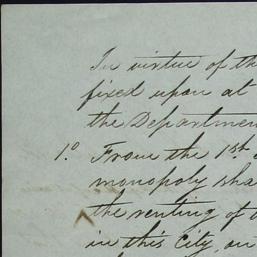 In virtue of th
fixed upon at
the Departmen
1º From the 1st
monopoly sha
the renting of
in this City, on